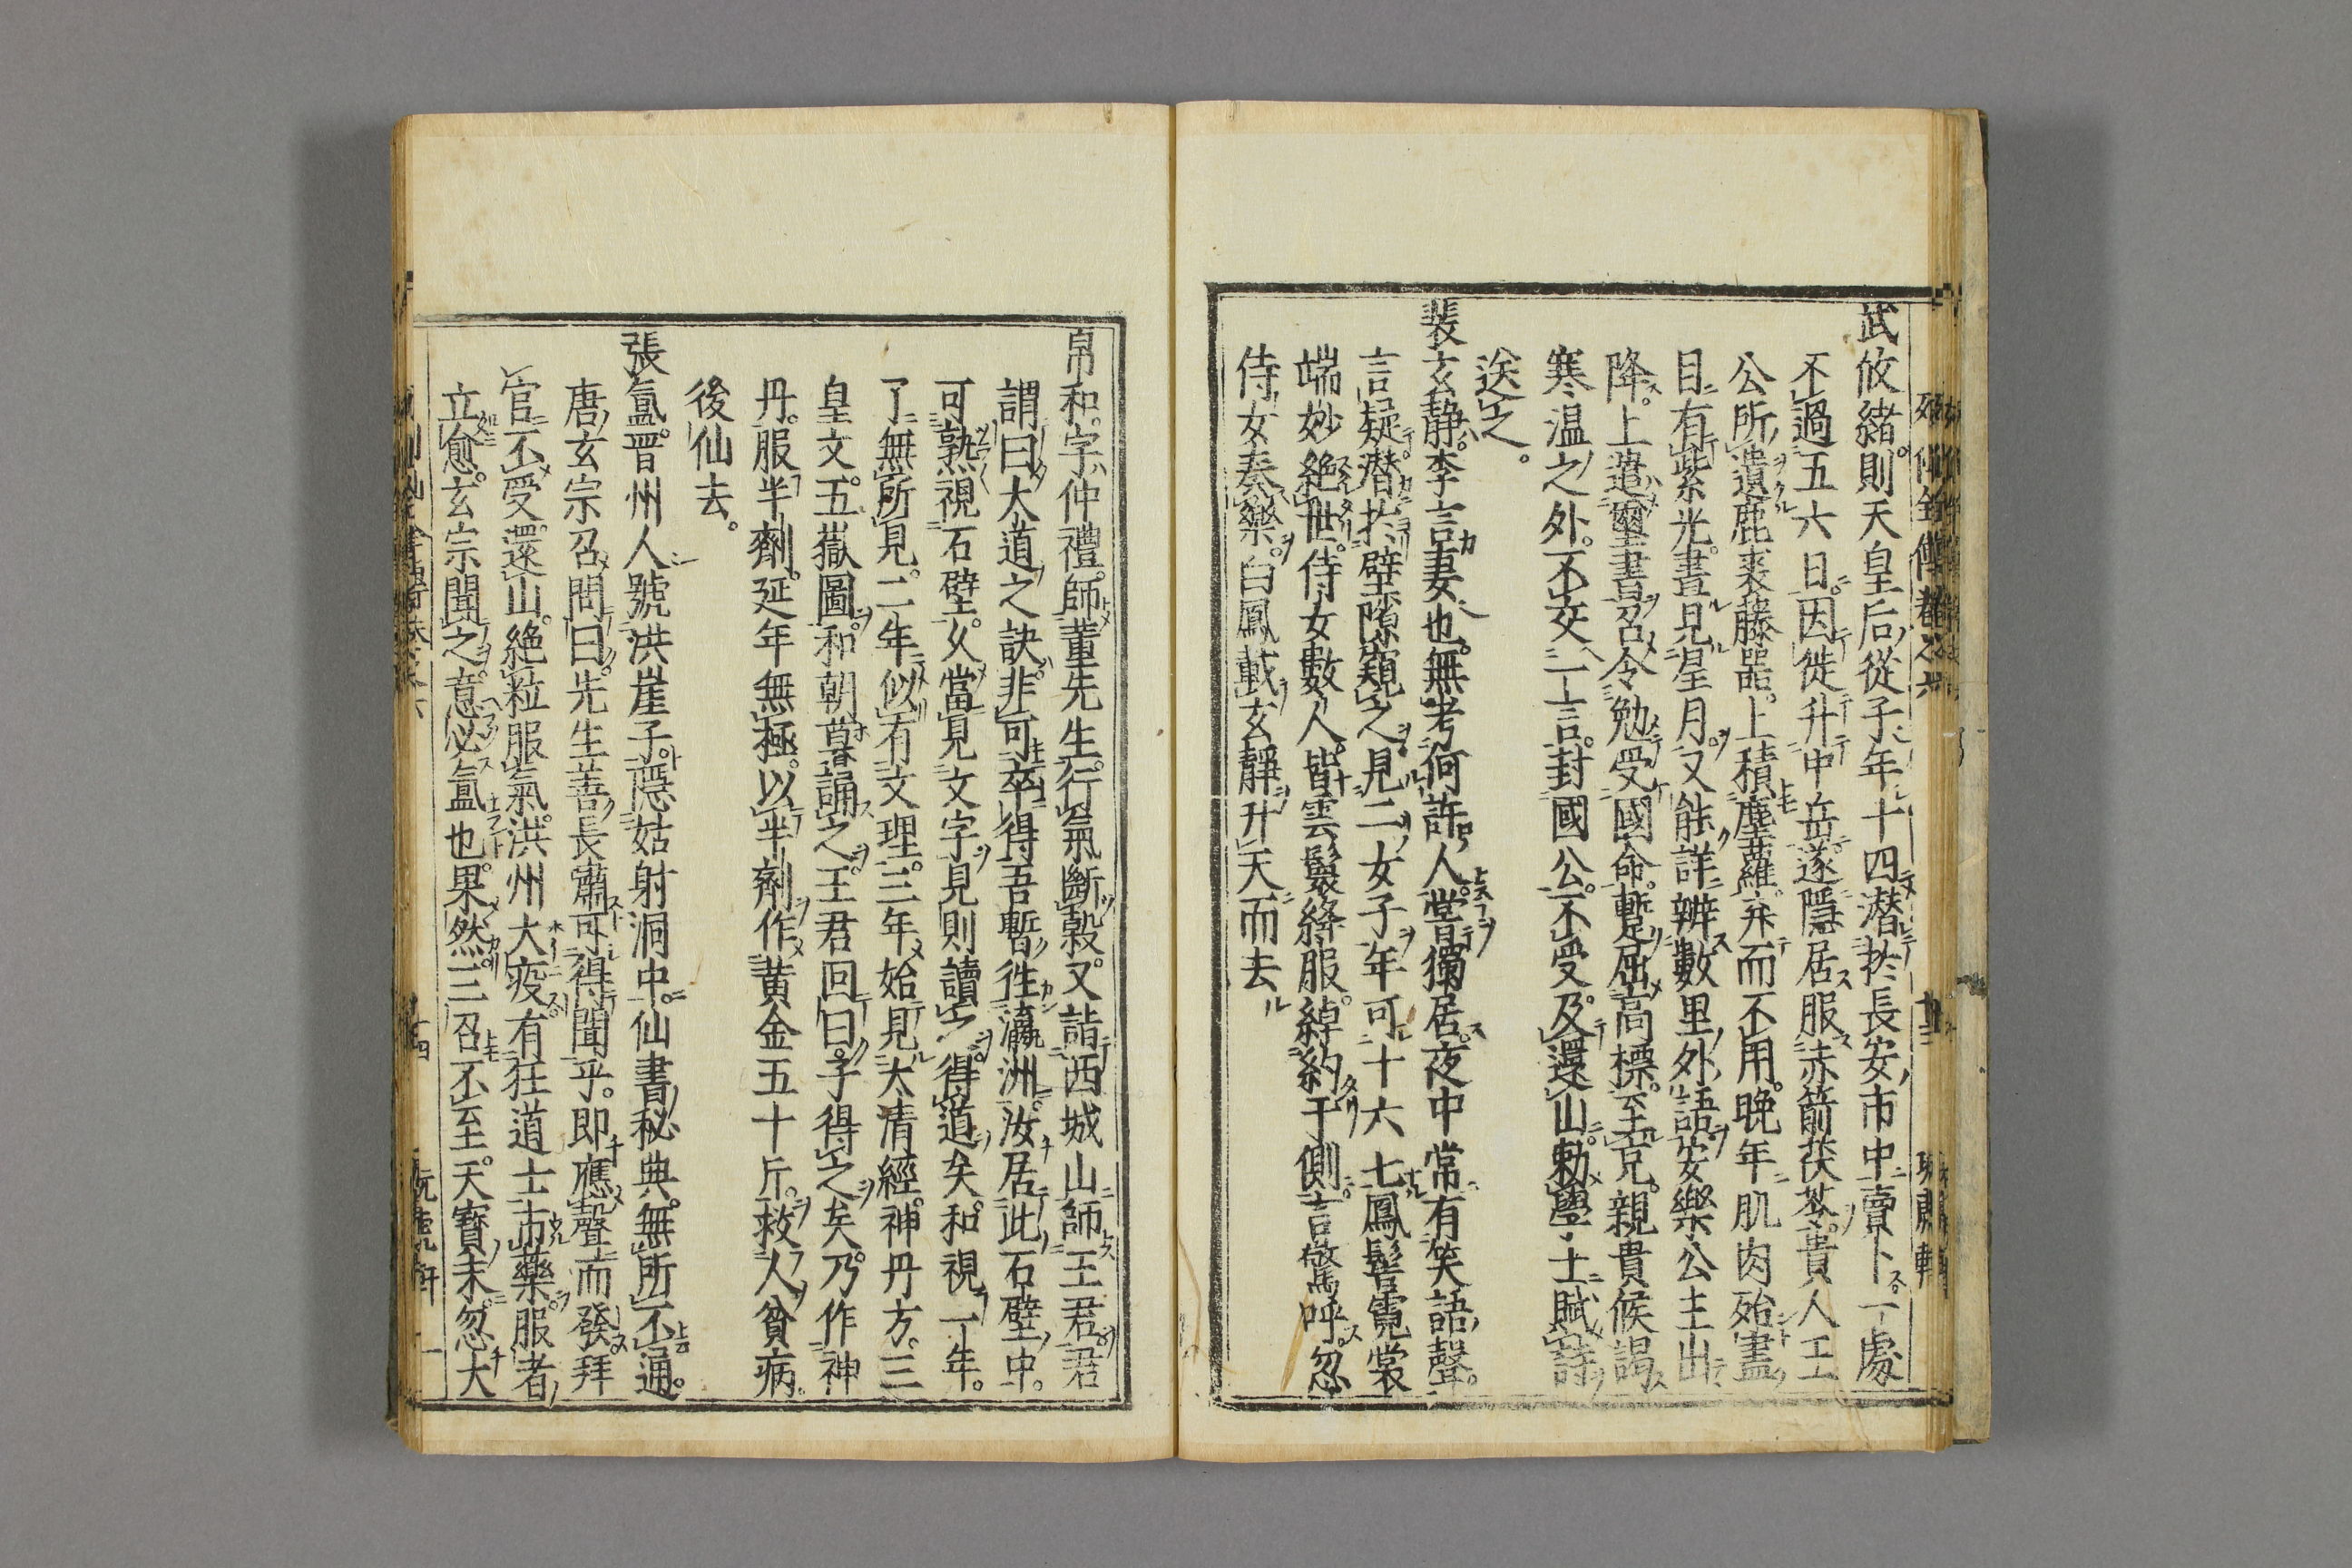 武攸緒。則天皇后從子。年十四潛於長安市中賣卜。一處
不過五六日。因徙升中岳。遂隱居服赤箭茯苓。貴人王
公所遺鹿裘藤器。上積塵蘿。弃而不用。晚年肌肉殆盡。
目有紫光。晝見星月。又能詳辨數里外語。安樂公主出
降。上遣璽書召令勉受國命。暫屈高標。至京。親貴候謁。
寒溫之外。不交一言。封國公。不受。及還山。勅學士賦詩
送之。
裴玄靜。李言妻也。無考何許人。嘗獨居。夜中常有笑語聲。
言疑。潛於壁隙窺之。見二女子年可十六七。鳳髻霓裳
端妙絶世。侍女數人。皆雲鬟絳服。綽約于側。言驚呼。忽
侍女奏樂。白鳳載玄靜升天而去
帛和。字仲禮。師董先生。行氣斷穀。又詣西城山師王君。君
謂曰。大道之訣。非可卒得。吾暫往瀛洲。汝居此石壁中。
可熟視石壁。久當見文字。見則讀之。得道矣。和視一年。
了無所見。二年似有文理。三年始見太清經。神丹方。三
皇文。五嶽圖。和朝暮誦之。王君回曰。子得之矣。乃作神
丹。服半劑。延年無極。以半劑作黃金五十斤。救人貧病。
後仙去。
張氳。晉州人。號洪崖子。隱姑射洞中。仙書秘典。無所不通。
唐玄宗召問曰。先生善長嘯可得聞乎。即應聲而發。拜
官不受。還山。絶粒服氣。洪州大疫。有狂道士市藥。服者
立愈。玄宗聞之。意必氳也。果然。三召不至。天寶末。忽大